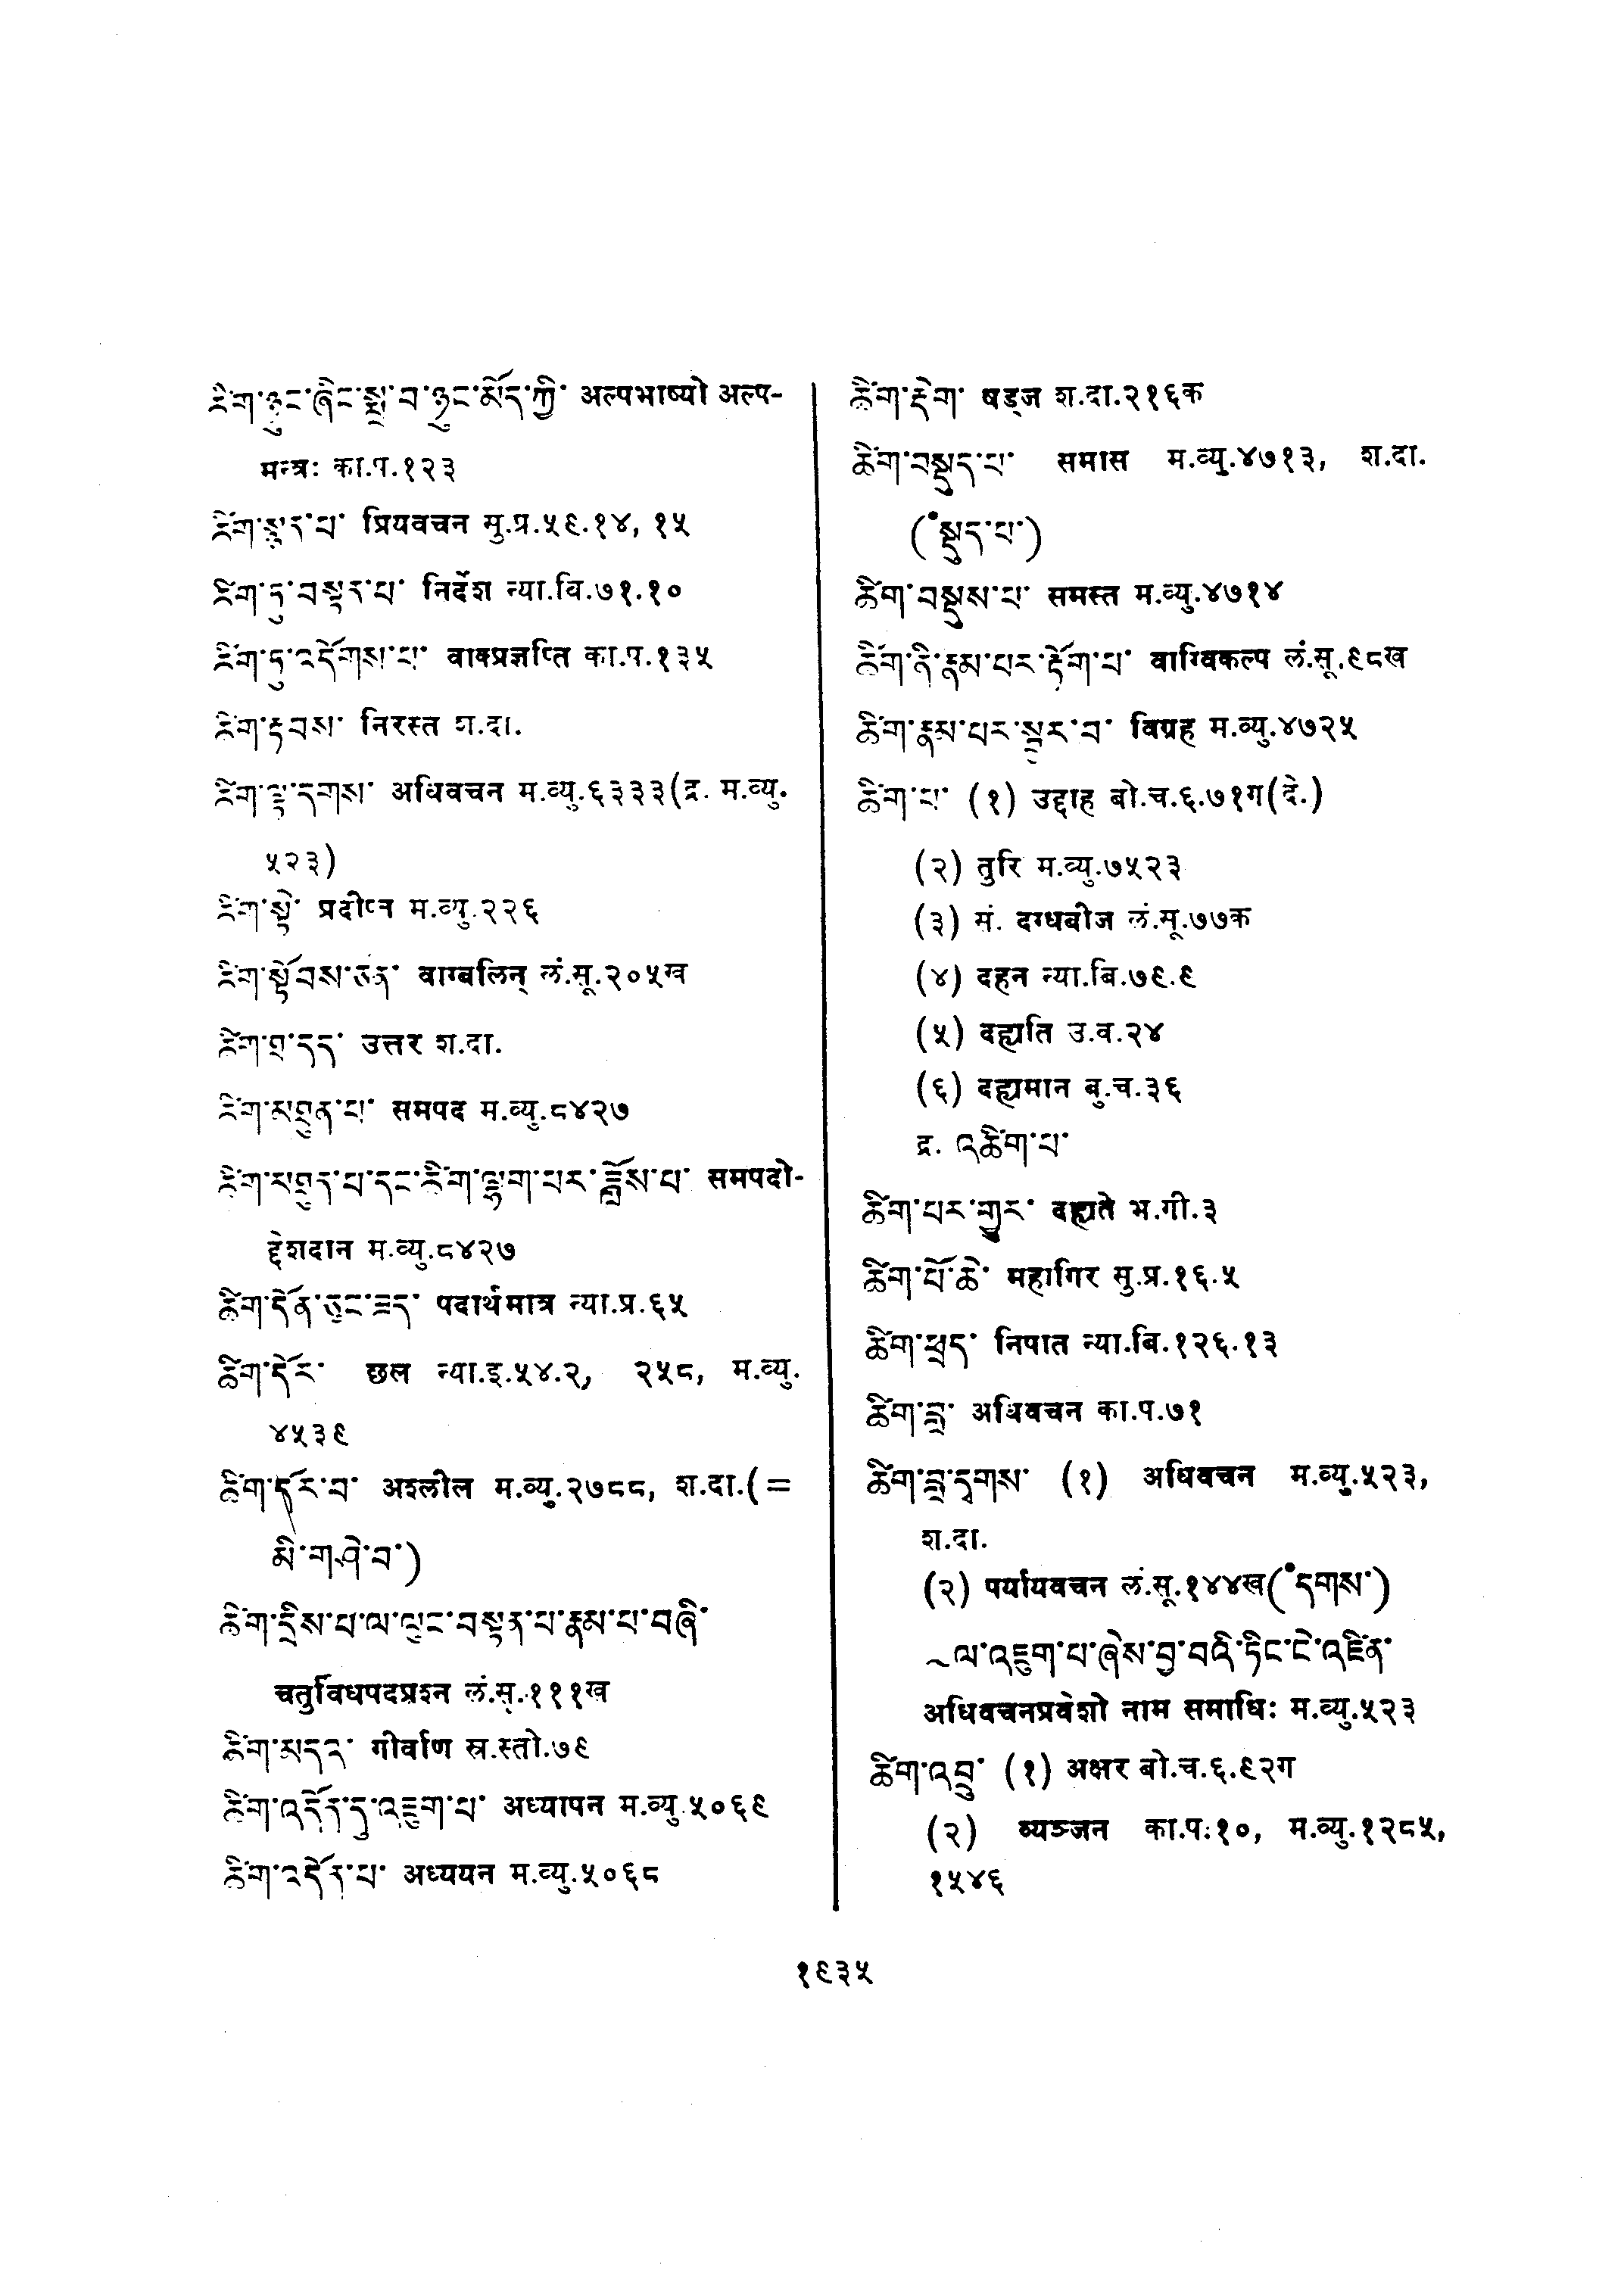 ཚིག་ཉུང་ཞིང་སྨྲ་བ་ཉུང་མོད་ཀྱི་ अल्पभाष्यो अल्प-
मन्त्रः का.प.१२३
ཚིག་སྙན་པ་ प्रियवचन सु.प्र.५९.१४, १५
ཚིག་ཏུ་བསྟན་པ་ निर्देश न्या.बि.७१.१०
ཚིག་ཏུ་འདོགས་པ་ वाक्प्रज्ञप्ति का.प.१३५
ཚིག་རྟབས་ निरस्त श.दा.
ཚིག་ལྟ་དགས་ अधिवचन म.व्यु.६३३३(द्र. म.व्यु.
५२३)
ཚིག་སྟེ་ प्रदीप्त म.व्यु.२२६
ཚིག་སྟོབས་ཅན་ वाग्बलिन् लं.सू.२०५ख
ཚིག་ཐ་དད་ उत्तर श.दा.
ཚིག་མཐུན་པ་ समपद म.व्यु.८४२७
ཚིག་མཐུན་པ་དང་ཚིག་ལྷག་པར་ཟློས་པ་ समपदो-
द्देशदान म.व्यु.८४२७
ཚིག་དོན་ཙང་ཟད་ पदार्थमात्र न्या.प्र.६५
ཚིག་དོར་ छल न्या.इ.५४.२, २५८, म.व्यु.
४५३९
ཚིག་དོར་བ་ अश्लील म.व्यु.२७८८, श.दा.(=
མི་ག་ཤེ་བ་)
ཚིག་དྲིས་པ་ལ་ལུང་བསྟན་པ་རྣམ་པ་བཞི་
चतुर्विधपदप्रश्न लं.सू.१११ख
ཚིག་མདའ་ गीर्वाण स्र.स्तो.७९
ཚིག་འདོན་དུ་འཇུག་པ་ अध्यापन म.व्यु.५०६९
ཚིག་འདོན་པ་ अध्ययन म.व्यु.५०६८
ཚིག་རྡེག་ षड्ज श.दा.२१६क
ཚིག་བསྡུད་པ་ समास म.व्यु.४७१३, श.दा.
(˚སྡུད་པ་)
ཚིག་བསྡུས་པ་ समस्त म.व्यु.४७१४
ཚིག་ནི་རྣམ་པར་རྟོག་པ་ वाग्विकल्प लं.सू.९८ख
ཚིག་རྣམ་པར་སྦྱར་བ་ विग्रह म.व्यु.४७२५
ཚིག་པ་ (१) उद्दाह बो.च.६.७१ग(दे.)
(२) तुरि म.व्यु.७५२३
(३) सं. दग्धबीज लं.सू.७७क
(४) दहन न्या.बि.७९.९
(५) दह्यति उ.व.२४
(६) दह्यमान बु.च.३६
द्र. འཚིག་པ་
ཚིག་པར་གྱུར་ दह्यते भ.गी.३
ཚིག་པོ་ཆེ་ महागिर सु.प्र.१६.५
ཚིག་ཕྲད་ निपात न्या.बि.१२६.१३
ཚིག་བླ་ अधिवचन का.प.७१
ཚིག་བླ་དྭགས་ (१) अधिवचन म.व्यु.५२३,
श.दा.
(२) पर्यायवचन लं.सू.१४४ख(˚དགས་)
~ལ་འཇུག་པ་ཞེས་བྱ་བའི་ཏིང་ངེ་འཛིན་
अधिवचनप्रवेशो नाम समाधिः म.व्यु.५२३
ཚིག་འབྲུ་ (१) अक्षर बो.च.६.९२ग
(२) व्यञ्जन का.प.१०, म.व्यु.१२८५,
१५४६
१९३५